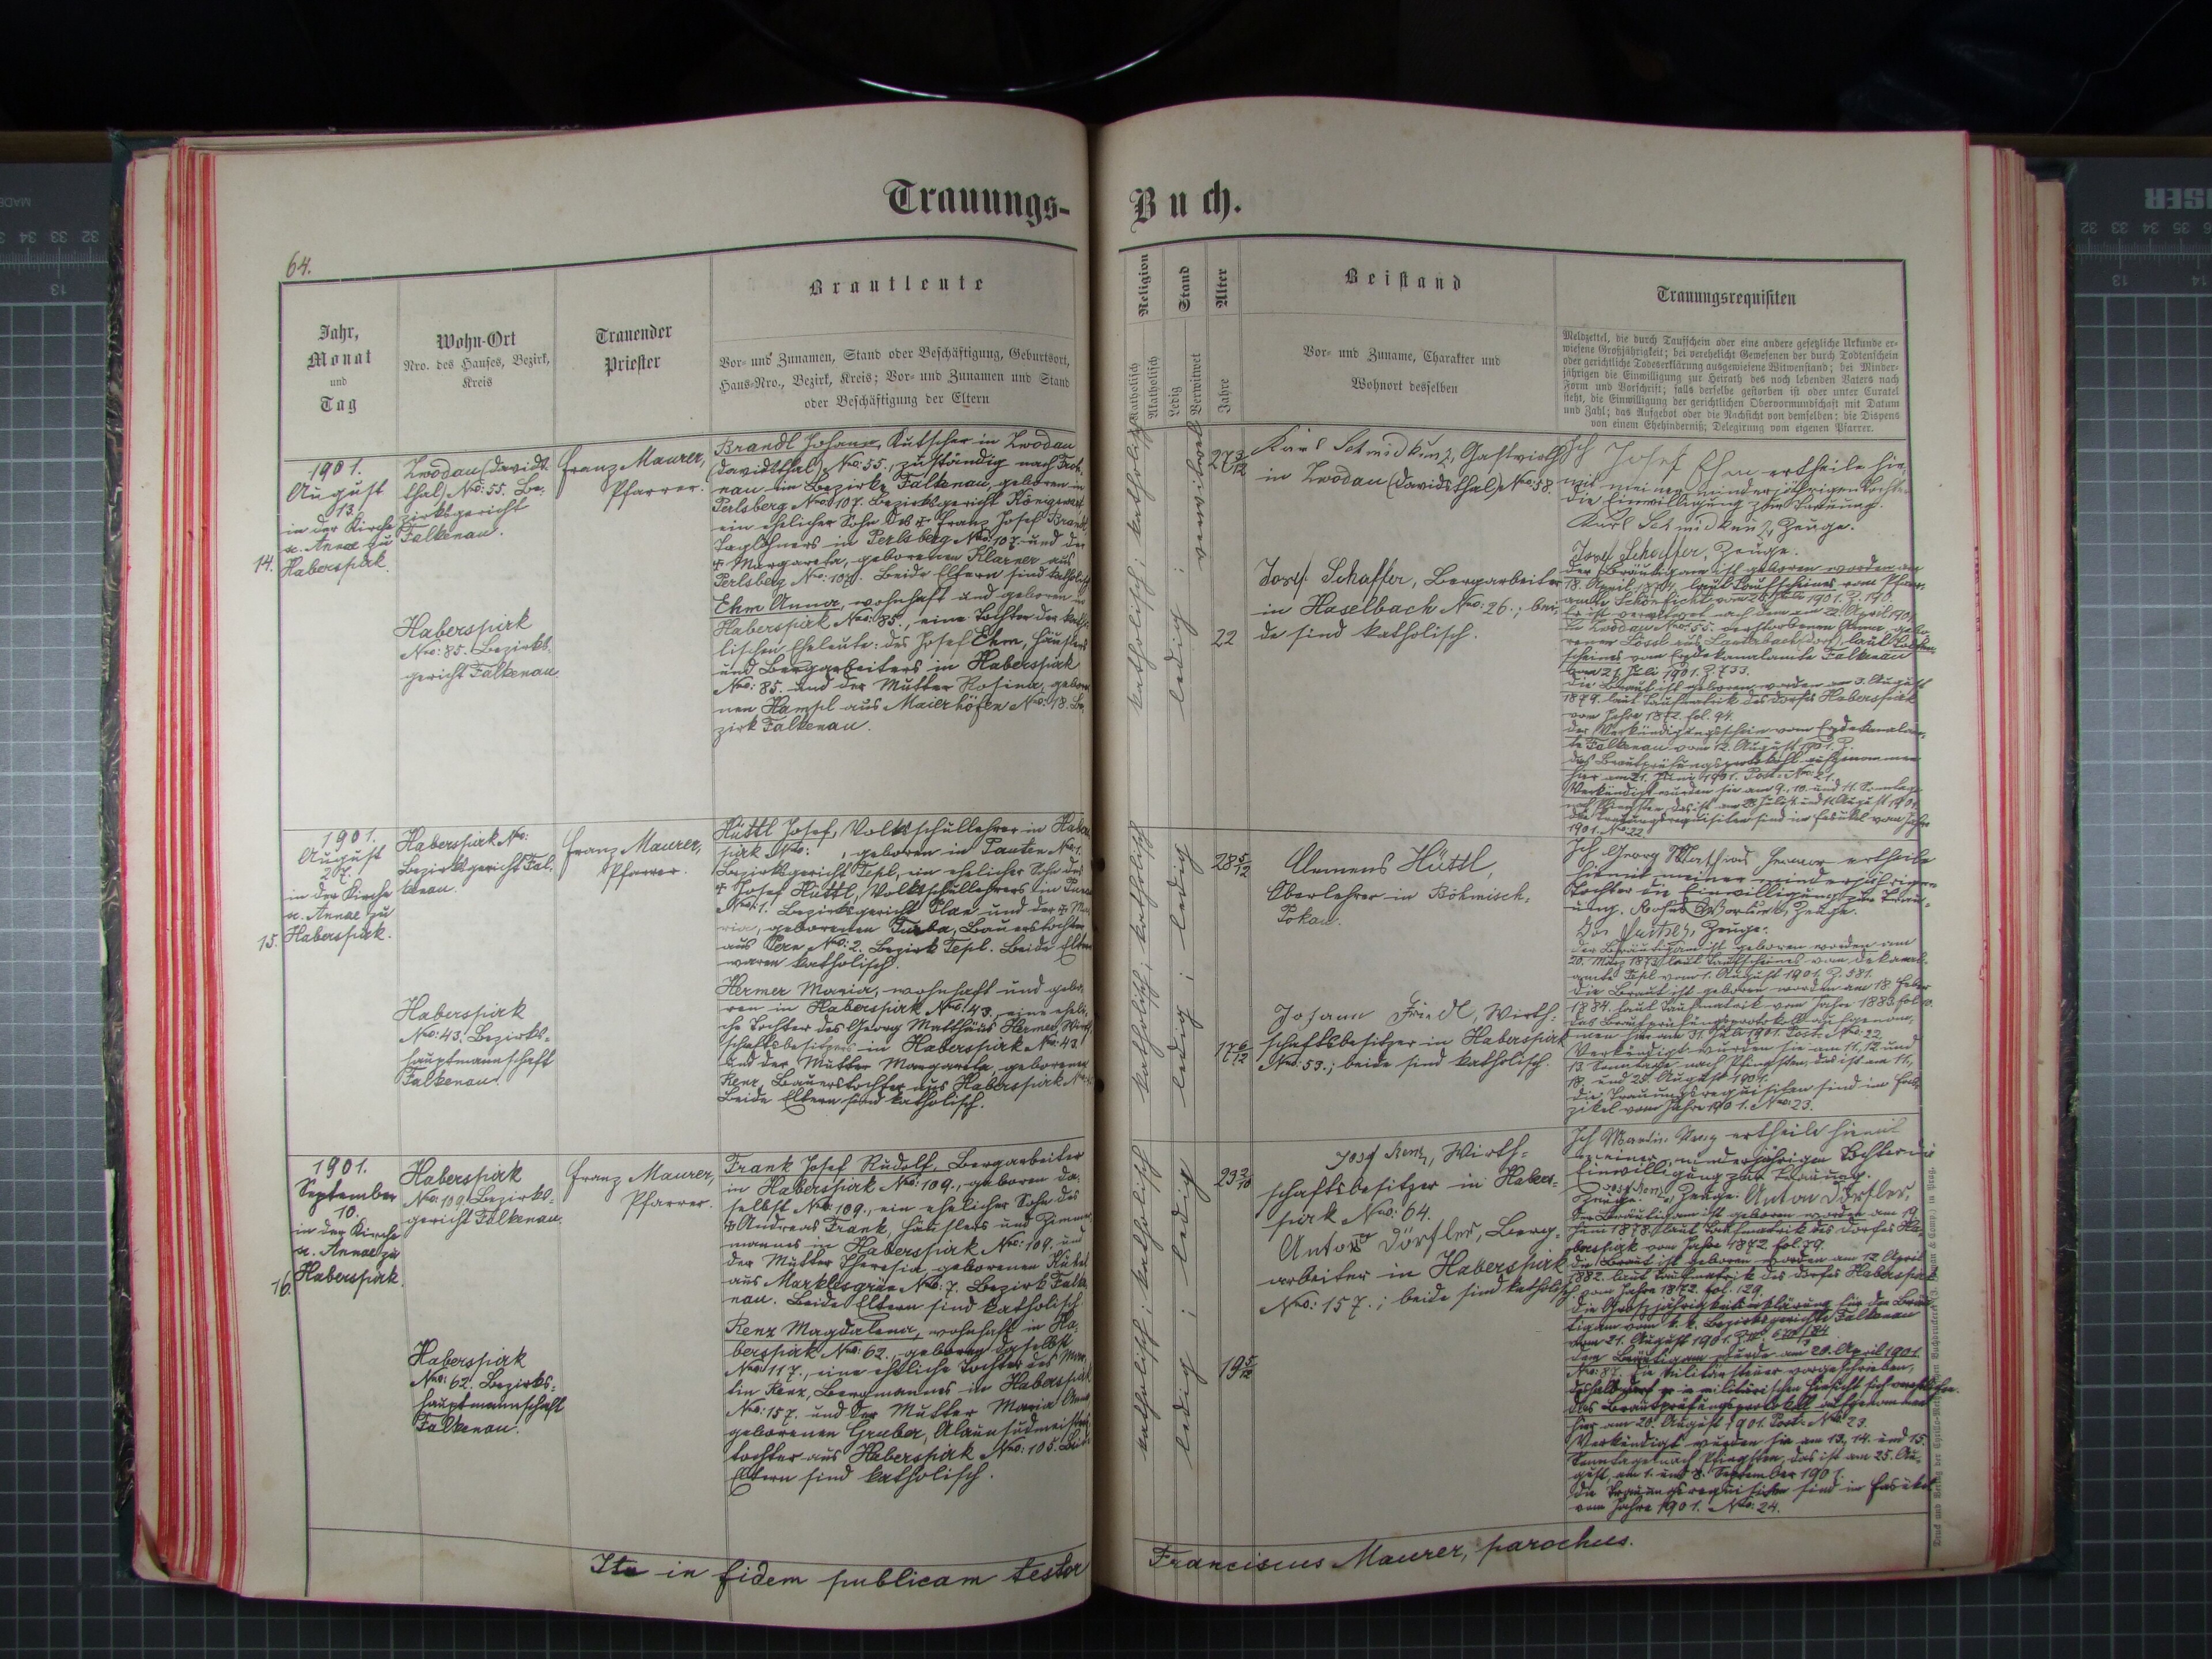 Trauungs-
Buch.
64.
Jahr,
Monat
und
Tag
Wohn-Ort
Nro. des Hauses, Bezirk,
Kreis
Trauender
Priester
Brautleute
Vor- und Zunamen, Stand oder Beschäftigung, Geburtsort,
Haus-Nro., Bezirk, Kreis; Vor- und Zunamen und Stand
oder Beschäftigung der Eltern
Religion
Katholisch
Akatholisch
Stand
Ledig
Verwitwet
Alter
Jahre
Beistand
Vor- und Zuname, Charakter und
Wohnort desselben
Trauungsrequisiten
Meldzettel, die durch Taufschein oder eine andere gesetzliche Urkunde er-
wiesene Großjährigkeit; bei verehelicht Gewesenen der durch Todtenschein
oder gerichtliche Todeserklärung ausgewiesene Witwenstand; bei Minder-
jährigen die Einwilligung zur Heirath des noch lebenden Vaters nach
Form und Vorschrift; falls derselbe gestorben ist oder unter Curatel
steht, die Einwilligung der gerichtlichen Obervormundschaft mit Datum
und Zahl; das Aufgebot oder die Nachsicht von demselben; die Dispens
von einem Ehehinderniß; Delegirung vom eigenen Pfarrer.
1901.
August
13.
in der Kirche
s. Annae zu
14. Haberspirk.
Zwodau (Davids
thal) Nro: 55. Be-
zirksgericht
Falkenau.
Haberspirk
Nro: 85. Bezirks-
gericht Falkenau
Franz Maurer,
Pfarrer.
Brandl Johann, Kutscher in Zwodau
(Davidsthal) Nro: 55., zuständig nach
nau im Bezirke Falkenau, geboren in
Perlsberg Nro: 107. Bezirksgericht Königswart
ein ehelicher Sohn des + Franz Josef Brandl
Taglöhners in Perlsberg Nro: 107. und der
+ Margareta, geborenen Klarner aus
Perlsberg Nro: 107. Beide Eltern sind katholisch
Ehm Anna, wohnhaft und geboren in
Haberspirk Nro: 85., eine Tochter der katho-
lischen Eheleute: des Josef Ehm, Häuslers
und Bergarbeiters in Haberspirk
Nro: 85. und der Mutter Rosina, gebore-
nen Hampl aus Maierhöfen Nro: 18. Be-
zirk Falkenau.
katholisch; katholisch
verwitwet
ledig
27 3/12
22
Karl Schmidkunz, Gastwirth
in Zwodau (Davidsthal) Nro: 58.
Josef Schaffer, Bergarbeiter
in Haselbach Nro: 26.; bei-
de sind katholisch.
Ich Josef Ehm ertheile hie-
mit meiner minderjährigen Tochter
die Einwilligung zur Trauung.
Karl Schmidkunz, Zeuge.
Josef Schaffer, Zeuge.
Der Bräutigam ist geboren worden am
18. April laut Taufscheines vom Pfarr-
amte Schönficht vom 1901. Z. 190.
Er ist verwitwet nach dem am 22. April 1901
in Zwodau Nro: 55. verstorbenen Anna, gebo-
renen Lössl aus Lauterbach (Dorf) laut Todten-
scheines vom Erzdekanalamte Falkenau
vom 27. Juli 1901. Z. 733.
Die Braut ist geboren worden am 3. August
1879. laut Taufmatrik des Dorfes Haberspirk
vom Jahre 1872. fol. 94.
Der Verkündigungsschein vom Erzdekanalam-
te Falkenau vom 12. August 1901. Z.
Das Brautprüfungsprotokoll aufgenommen
hier am 21. Juni 1901. Post-Nro: 21.
Verkündigt wurden sie am 9., 10. und 11. Sonntage
nach Pfingsten, das ist am 28. Juli, 4. und 11. August 1901.
Die Trauungsrequisiten sind im Fasikel vom Jahre
1901. Nro: 22.
1901.
August
27.
in der Kirche
s. Annae zu
15. Haberspirk.
Haberspirk Nro:
Bezirksgericht Fal-
kenau.
Haberspirk
Nro: 43. Bezirks-
hauptmannschaft
Falkenau.
Franz Maurer,
Pfarrer.
Hüttl Josef, Volksschullehrer in Haber-
spirk Nro: , geboren in Pauten Nro: 1.
Bezirksgericht Tepl, ein ehelicher Sohn des
+ Josef Hüttl, Volksschullehrers in
Nro: 1. Bezirksgericht Plan und der + Ma-
ria, geborenen Turba, Bauerstochter
aus Pern Nro: 2. Bezirk Tepl. Beide Eltern
waren katholisch.
Hermer Maria, wohnhaft und gebo-
ren in Haberspirk Nro: 43., eine eheli-
che Tochter des Georg Matthäus Hermer, Wirth-
schaftsbesitzers in Haberspirk Nro: 43.
und der Mutter Margareta, geborenen
Renz, Bauerstochter aus Haberspirk Nro:
Beide Eltern sind katholisch.
katholisch; katholisch
ledig; ledig
28 5/12
17 6/12
Clemens Hüttl,
Oberlehrer in Böhmisch-
Pokau.
Johann Friedl, Wirth-
schaftsbesitzer in Haberspirk
Nro: 53.; beide sind katholisch.
Ich Georg Mathias Hermer ertheile
hiemit meiner minderjährigen
Tochter die Einwilligung zur Trau-
ung. Zeuge.
Zeuge.
Der Bräutigam ist geboren worden am
20. März 1873. laut Taufscheines vom Dekanal-
amte Tepl vom 1. August 1901. Z. 581.
Die Braut ist geboren worden am 18. Feber
1884. laut Taufmatrik vom Jahre 1883. fol.
Das Brautprüfungsprotokoll aufgenom-
men hier am 31. Juli 1901. Post-Nro: 22.
Verkündigt wurden sie am 11., 12. und
13. Sonntage nach Pfingsten, das ist am 11.,
18. und 25. August 1901.
Die Trauungsrequisiten sind im Fas-
zikel vom Jahre 1901. Nro: 23.
1901.
September
10.
in der Kirche
s. Annae zu
16. Haberspirk.
Haberspirk
Nro: 109. Bezirks-
gericht Falkenau.
Haberspirk
Nro: 62. Bezirks-
hauptmannschaft
Falkenau.
Franz Maurer,
Pfarrer.
Frank Josef Rudolf, Bergarbeiter
in Haberspirk Nro: 109., geboren da-
selbst Nro: 109., ein ehelicher Sohn des
+ Andreas Frank, Häuslers und Zimmer-
mannes in Haberspirk Nro: 109. und
der Mutter Theresia, geborenen
aus Marklesgrün Nro: 7. Bezirk Falke-
nau. Beide Eltern sind katholisch.
Renz Magdalena, wohnhaft in Ha-
berspirk Nro: 62., geboren daselbst
Nro: 117., eine eheliche Tochter des Mar-
tin Renz, Bergmannes in Haberspirk
Nro: 157. und der Mutter Maria Anna
geborenen Gruber, Alaunsudmeisters-
tochter aus Haberspirk Nro: 105. Beide
Eltern sind katholisch.
katholisch; katholisch
ledig; ledig
23 3/10
19 5/12
Josef Renz, Wirth-
schaftsbesitzer in Habers-
pirk Nro: 64.
Anton Dörfler, Berg-
arbeiter in Haberspirk
Nro: 157.; beide sind katholisch.
Ich Martin Renz ertheile hiemit
meiner minderjährigen Tochter die
Einwilligung zur Trauung.
Josef Renz, Zeuge. Anton Dörfler,
Zeuge.
Der Bräutigam ist geboren worden am 19.
Juni 1878. laut Taufmatrik des Dorfes Ha-
berspirk vom Jahre 1872. fol. 79.
Die Braut ist geboren worden am 12. April
1882. laut Taufmatrik des Dorfes Haberspirk
vom Jahre 1872. fol. 129.
Die Grossjährigkeitserklärung für den Bräu-
tigam vom k. k. Bezirksgerichte Falkenau
vom 21. August 1901.
Dem Bräutigam wurde am 20. April 1901.
Nro: 87. die Militärsteuer vorgeschrieben,
deshalb darf er in militärischer Hinsicht sich verehelichen.
Das Brautprüfungsprotokoll aufgenommen
hier am 20. August 1901. Post-Nro: 23.
Verkündigt wurden sie am 13., 14. und 15.
Sonntage nach Pfingsten, das ist am 25. Au-
gust, am 1. und 8. September 1901.
Die Trauungsrequisiten sind im Fasikel
vom Jahre 1901. Nro: 24.
Ita in fidem publicam testor
Franciscus Maurer, parochus.